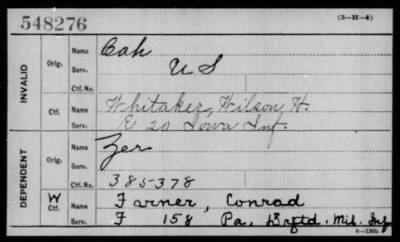 548276
(3-H-4)
INVALID
Orig.
Name Oah
Serv. U S
Ctf. No.
Ctf.
Name Whitaker, Wilson H.
Serv. E 20 Iowa Inf.
DEPENDENT
Orig.
Name Zer
Serv.
Ctf. No. 385-378
W
Ctf.
Name Farner, Conrad
Serv. F 158 Pa. Drftd. Mil. Inf